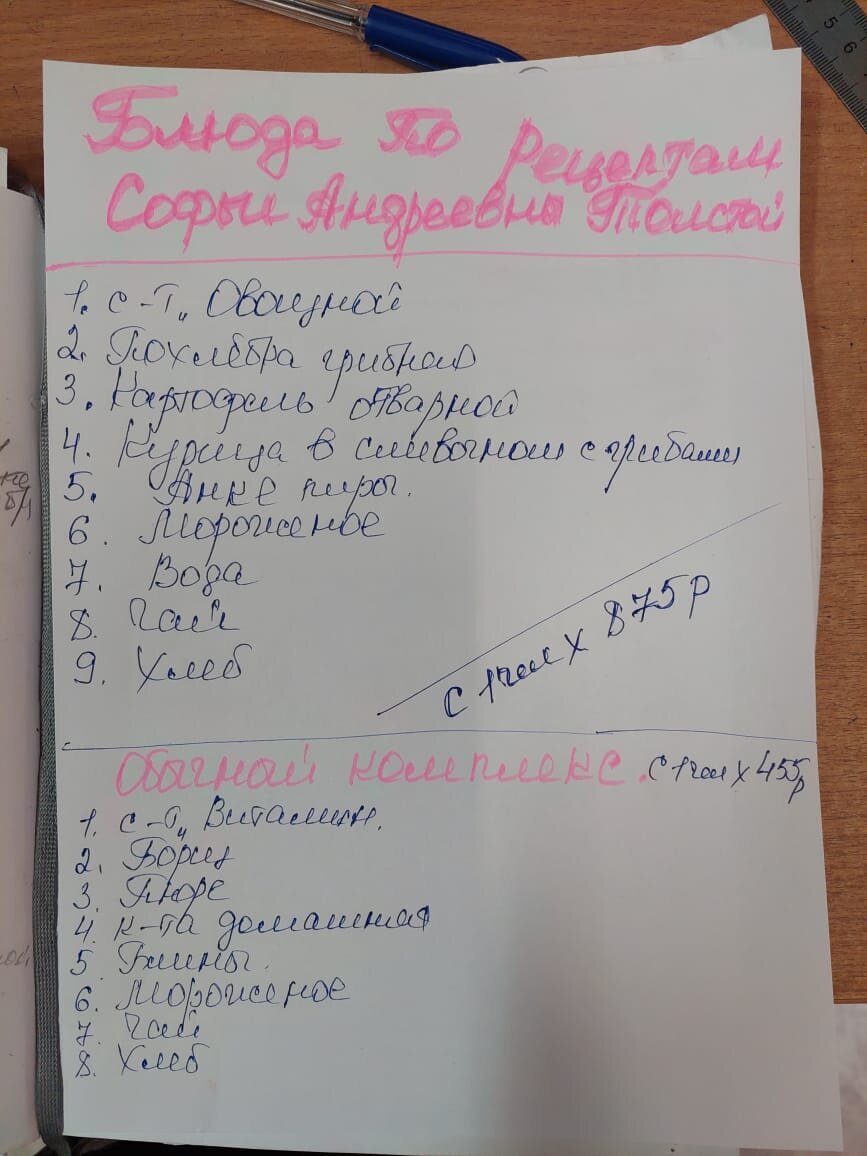 Блюда по рецептам
Софьи Андреевны Толстой
1. с-т „ Овощной
2. Похлебка грибная
3. Картофель отварной
4. Курица в сливочном с грибами
5. Анке пиры.
6. Мороженое
7. Вода
8. Чай
9. Хлеб
с 1 чел х 875 р
Обычный комплекс. с 1 чел х 455 р
1. с-т „ Витамин.
2. Борщ
3. Пюре
4. к-та домашная
5 Блины.
6. Мороженое
7. Чай
8. Хлеб
5 6